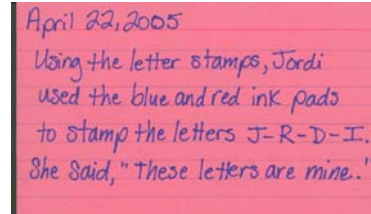 April 22, 2005
Using the letter stamps, Jordi
used the blue and red ink pads
to stamp the letters J-R-D-I.
She Said, "These letters are mine."